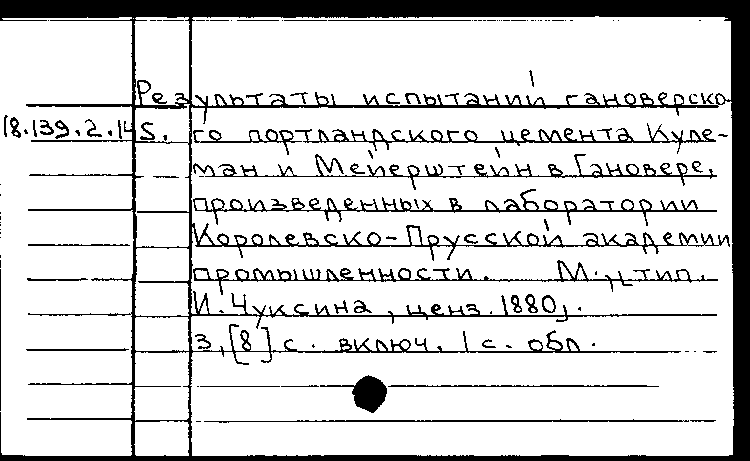 Результаты испытаний гановерско-
18.139.2.145. го портландского цемента Куле-
ман и Мейерштейн в Гановере,
произведенных в лаборатории
Королевско-Прусской академии
промышленности. М., тип.
И. Чуксина, ценз. 1880.
3, [8] с. включ. 1 с. обл.